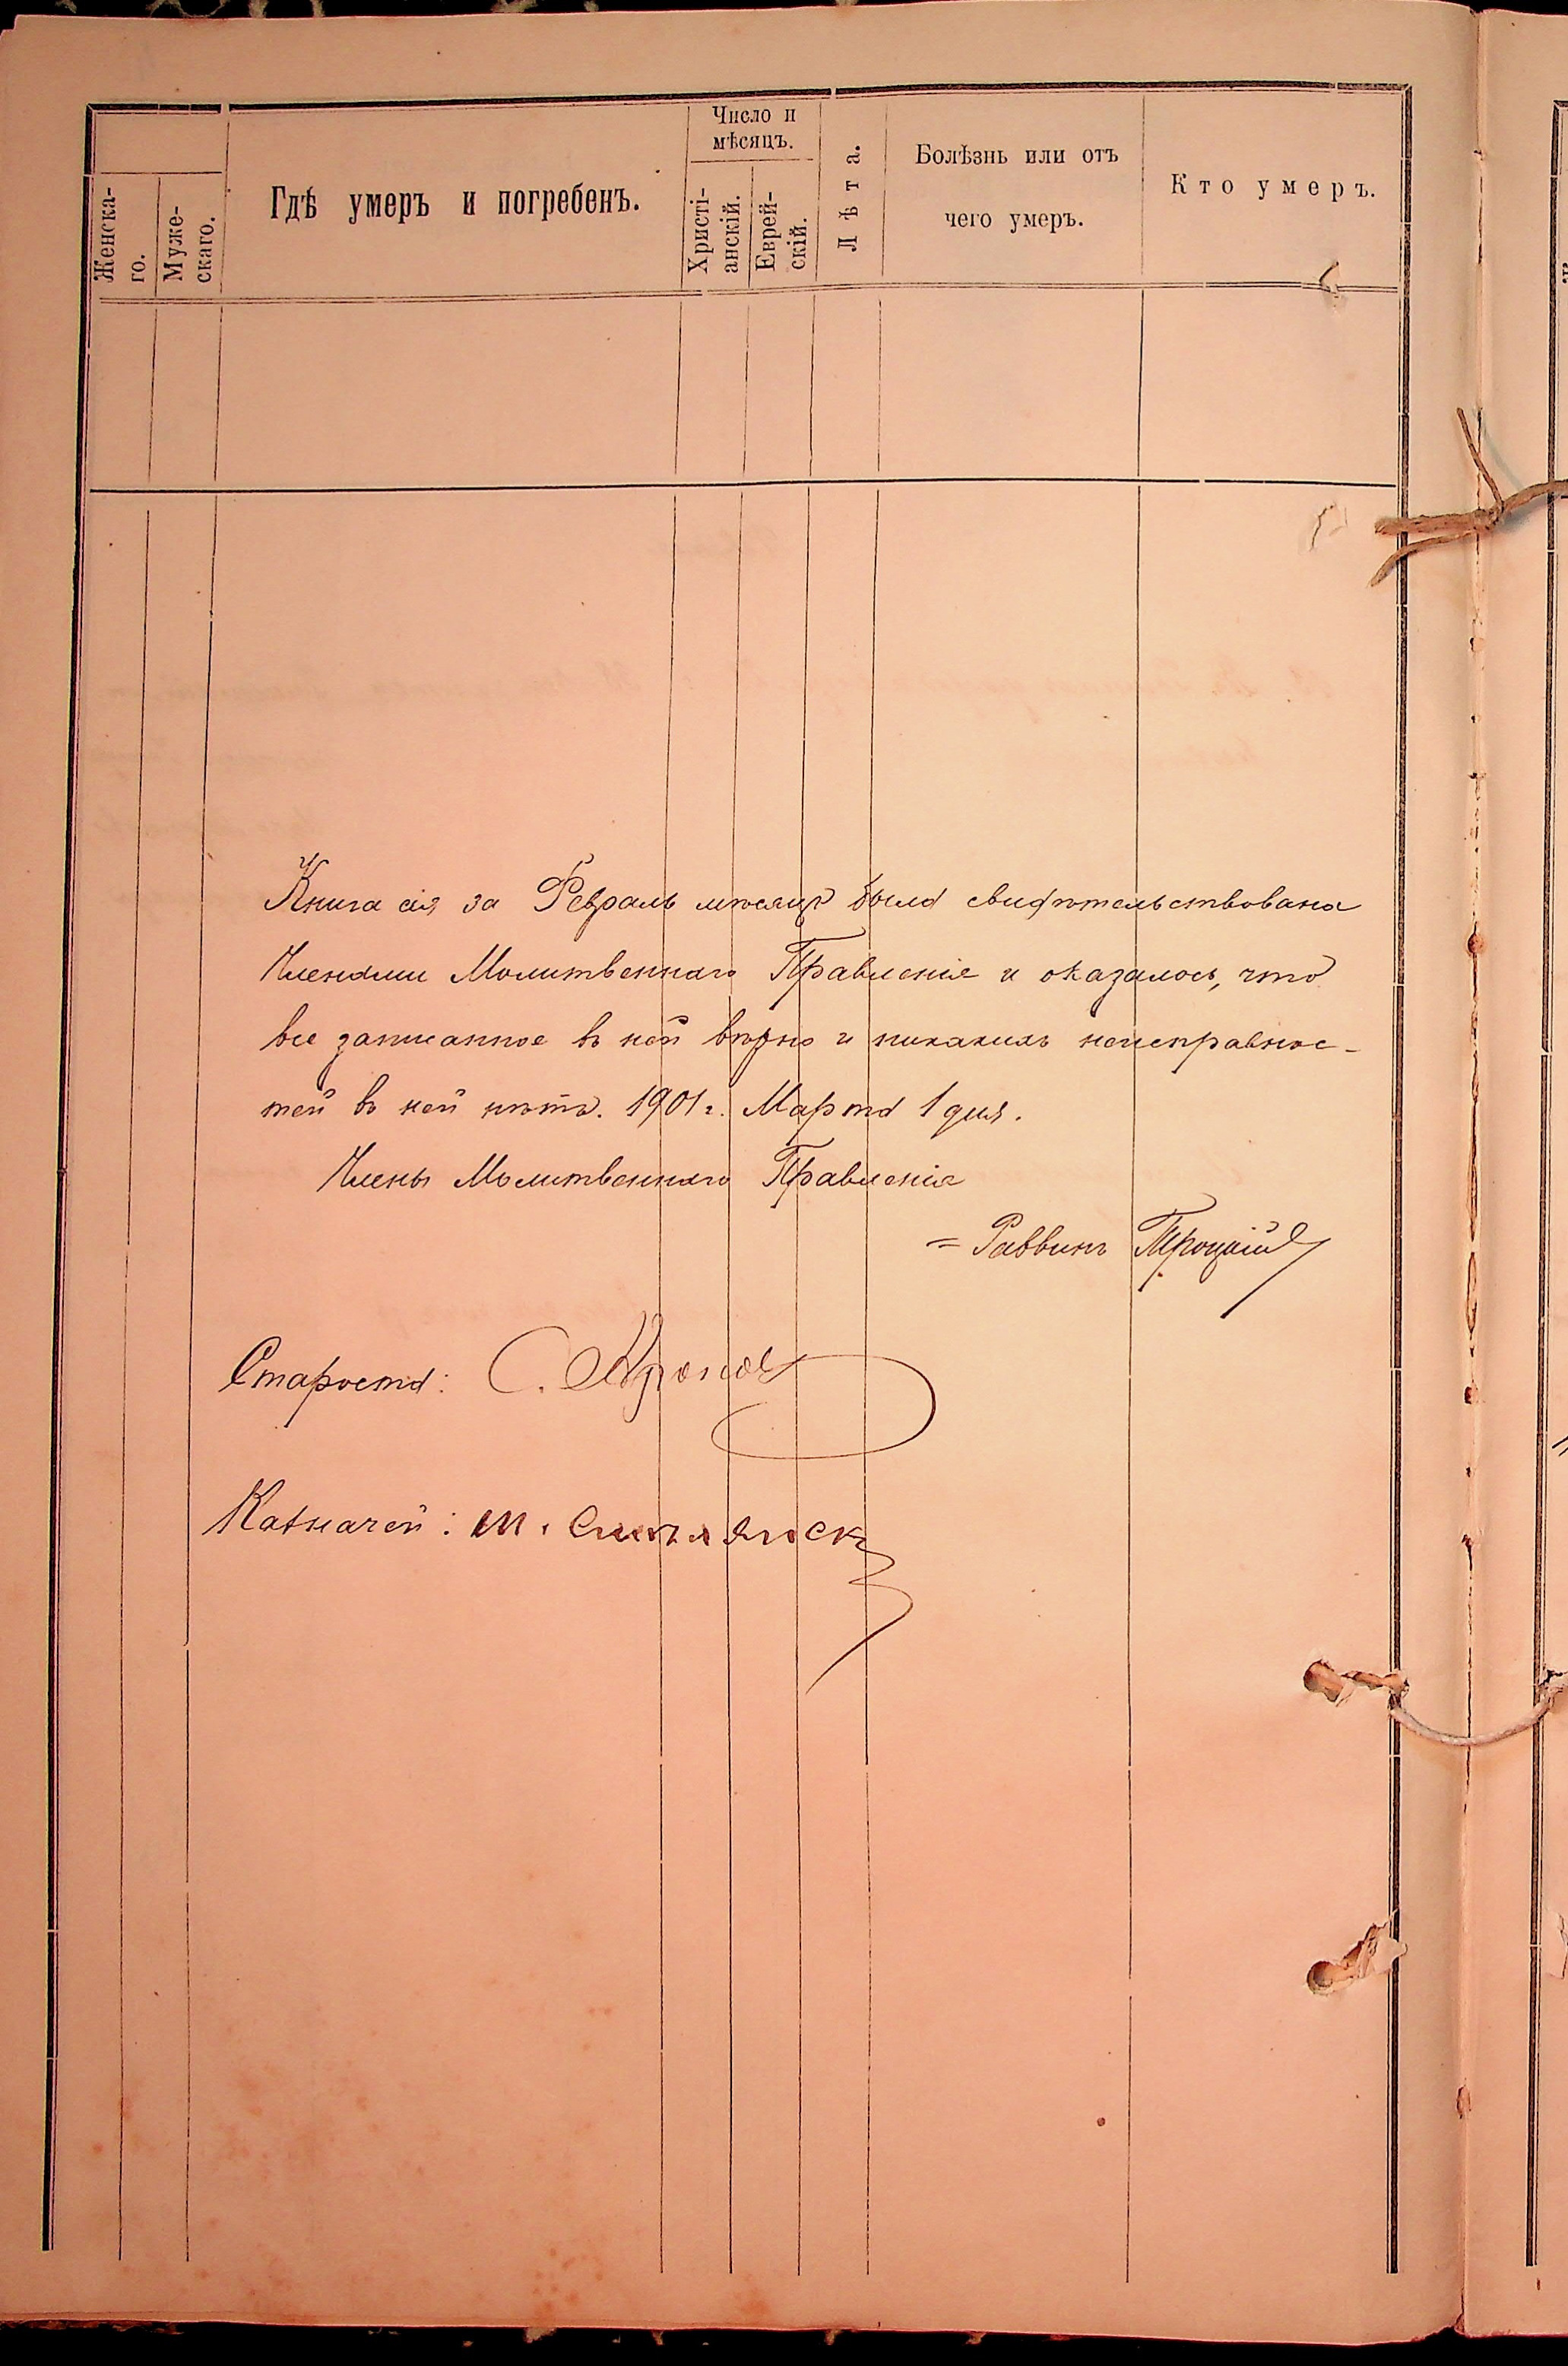 Женска-
го.
Муже-
скаго.
Гдѣ умеръ и погребенъ.
Число и
мѣсяцъ.
Христі-
анскій.
Еврей-
скій.
Лѣта.
Болѣзнь или отъ
чего умеръ.
Кто умеръ.
Книга сія за Февраль мѣсяцъ была свидѣтельствована
Членами Молитвеннаго Правленія и оказалось, что
все записанное въ ней вѣрно и никакихъ неисправнос-
тей въ ней нѣтъ. 1901 г. Марта 1 дня.
Члены Молитвеннаго Правленія
= Раввинъ Троцкій
Староста: С.
Казначей: М.